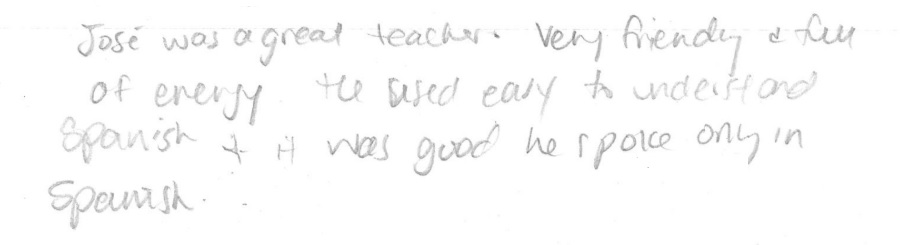 José was a great teacher. Very friendly & full
of energy. He used easy to understand
Spanish + it was good he spoke only in
Spanish.